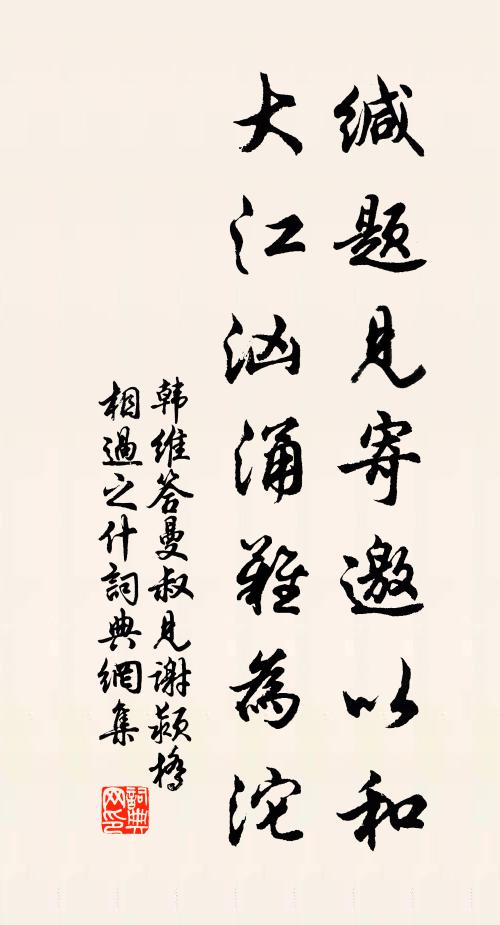 缄题见寄邀以和
大江汹涌难為沱
韩维答曼叔见谢颍桥
相過之什詞典網集
詞典
网印